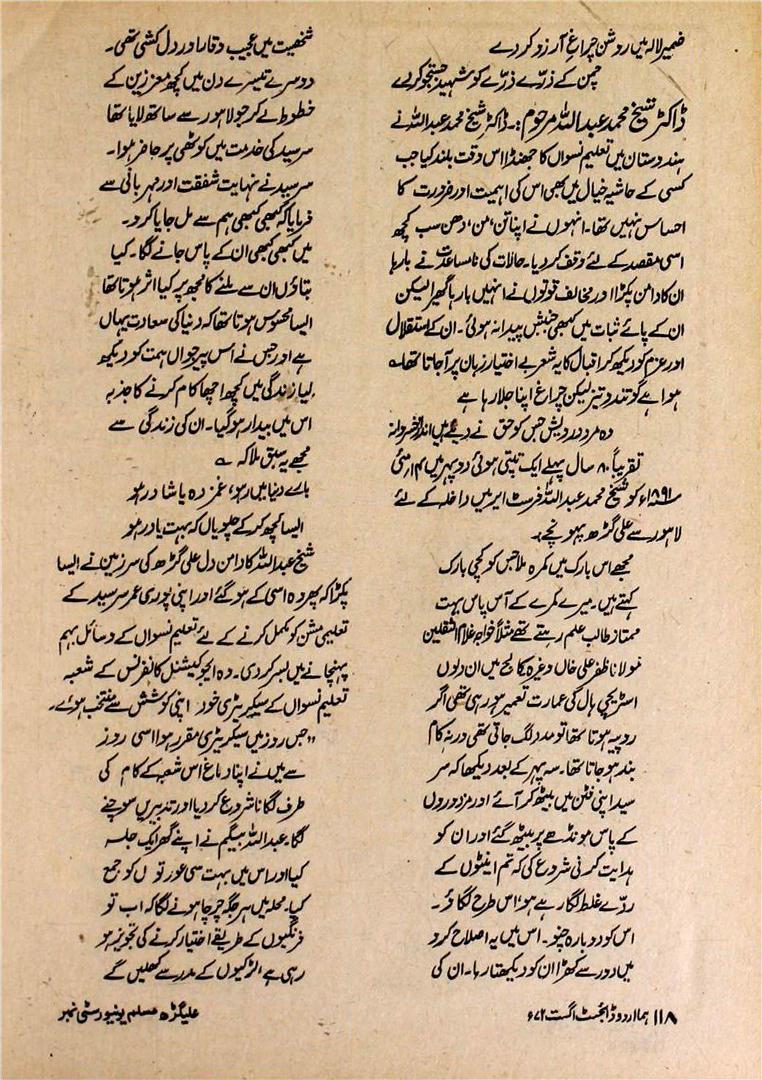 ضمیرِ لالہ میں روشن چراغِ آرزو کر دے
چمن کے ذرّے ذرّے کو شہیدِ جستجو کر دے
ڈاکٹر شیخ محمد عبداللہ مرحوم:۔ ڈاکٹر شیخ محمد عبداللہ نے
ہندوستان میں تعلیم نسواں کا جھنڈا اس وقت بلند کیا جب
کسی کے حاشیہ خیال میں بھی اس کی اہمیت اور ضرورت کا
احساس نہیں تھا۔ انہوں نے اپنا تن، من، دھن سب کچھ
اسی مقصد کے لئے وقف کر دیا۔ حالات کی نامساعدت نے بارہا
ان کا دامن پکڑا اور مخالف قوتوں نے انہیں بارہا گھیرا لیکن
ان کے پائے ثبات میں کبھی جنبش پیدا نہ ہوئی۔ ان کے استقلال
اور عزم کو دیکھ کر اقبال کا یہ شعر بے اختیار زبان پر آجاتا تھا ؎
ہوا ہے گو تند و تیز لیکن چراغ اپنا جلا رہا ہے
وہ مرد درویش جس کو حق نے دیئے ہیں انداز خسروانہ
تقریباً ۸۰ سال پہلے ایک تپتی ہوئی دوپہر میں ۱۴ مئی
۱۸۹۱ء کو شیخ محمد عبداللہ فرسٹ ایر میں داخلہ کے لئے
لاہور سے علی گڑھ پہونچے۔
مجھے اس بارک میں کمرہ ملا جس کو کچی بارک
کہتے ہیں۔ میرے کمرے کے آس پاس بہت
ممتاز طالب علم رہتے تھے مثلاً خواجہ غلام الثقلین
مولانا ظفر علی خاں وغیرہ کالج میں ان دنوں
اسٹریچی ہال کی عمارت تعمیر ہو رہی تھی اگر
روپیہ ہوتا تھا تو مدد لگ جاتی تھی ورنہ کام
بند ہو جاتا تھا۔ سہ پہر کے بعد دیکھا کہ سر
سید اپنی فٹن میں بیٹھ کر آئے اور مزدوروں
کے پاس مونڈھے پر بیٹھ گئے اور ان کو
ہدایت کرنی شروع کی کہ تم اینٹوں کے
ردّے غلط لگا رہے ہو، اس طرح لگاؤ۔
اس کو دوبارہ چنو۔ اس میں یہ اصلاح کرو
میں دور سے کھڑا ان کو دیکھتا رہا۔ ان کی
شخصیت میں عجیب وقار اور دل کشی تھی۔
دوسرے تیسرے دن میں کچھ معززین کے
خطوط لے کر جو لاہور سے ساتھ لایا تھا
سرسید کی خدمت میں کوٹھی پر حاضر ہوا۔
سرسید نے نہایت شفقت اور مہربانی سے
فرمایا کہ کبھی کبھی ہم سے مل جایا کرو۔
میں کبھی کبھی ان کے پاس جانے لگا۔ کیا
بتاؤں ان سے ملنے کا مجھ پر کیا اثر ہوتا تھا
ایسا محسوس ہوتا تھا کہ دنیا کی سعادت یہاں
ہے اور جس نے اس پیر جواں ہمت کو دیکھ
لیا زندگی میں کچھ اچھا کام کرنے کا جذبہ
اس میں بیدار ہو گیا۔ ان کی زندگی سے
مجھے یہ سبق ملا کہ ؎
بارے دنیا میں رہو، غمزدہ یا شاد رہو
ایسا کچھ کر کے چلو یاں کہ بہت یاد رہو
شیخ عبداللہ کا دامن دل علی گڑھ کی سرزمین نے ایسا
پکڑا کہ پھر وہ اسی کے ہو گئے اور اپنی پوری عمر سرسید کے
تعلیمی مشن کو مکمل کرنے کے لئے تعلیم نسواں کے وسائل بہم
پہنچانے میں بسر کر دی۔ وہ ایجوکیشنل کانفرنس کے شعبہ
تعلیم نسواں کے سیکریٹری خود اپنی کوشش سے منتخب ہوئے۔
"جس روز میں سیکریٹری مقرر ہوا اسی روز
سے میں نے اپنا دماغ اس شعبہ کے کام کی
طرف لگانا شروع کر دیا اور تدبیریں سوچنے
لگا۔ عبداللہ بیگم نے اپنے گھر ایک جلسہ
کیا اور اس میں بہت سی عورتوں کو جمع
کیا۔ محلہ میں ہر جگہ چرچا ہونے لگا کہ اب تو
فرنگیوں کے طریقے اختیار کرنے کی تجویز ہو
رہی ہے، لڑکیوں کے مدرسے کھلیں گے
۱۱۸ ہما اردو ڈائجسٹ اگست ۷۲ء
علیگڑھ مسلم یونیورسٹی نمبر